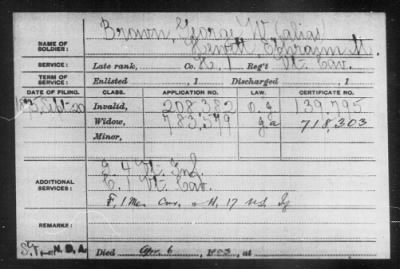 Brown, George W. (alias
NAME OF SOLDIER: Jewett, Ephraim M.
SERVICE: Late rank, Co. E, 1 Reg't Vt. Cav.
TERM OF SERVICE: Enlisted , 1 Discharged , 1
DATE OF FILING. CLASS. APPLICATION NO. LAW. CERTIFICATE NO.
1875 Sept-20 Invalid, 208,382 O. L. 139,795
Widow, 783,579 718,303
Minor,
E. 4 Vt. Inf.
ADDITIONAL SERVICES: E. 1 Vt. Cav.
F, 1 Me. Cav. & H, 17 U.S. If
REMARKS:
N. D. A. Died Apr. 6